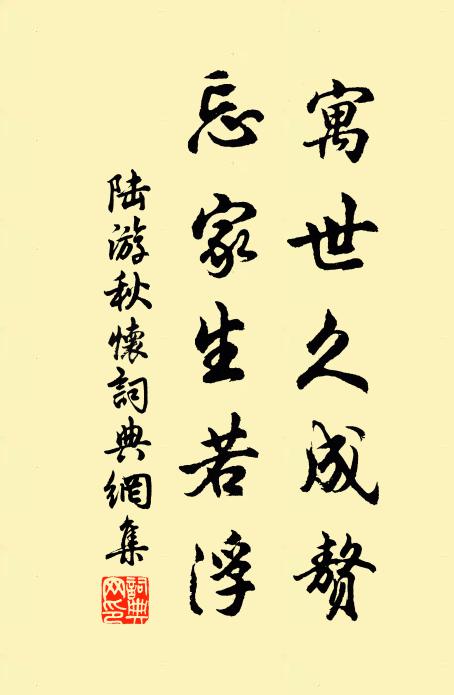 寓世久成贅
忘家生若浮
陸游秋懷詞典網集
詞典網印